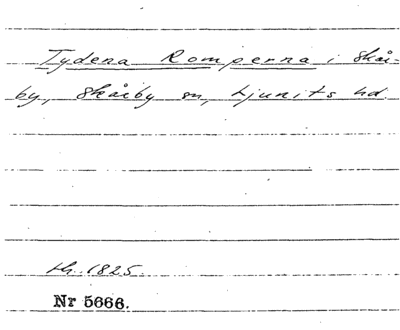 Tydena Romperna i Skår-
by, Skårby sn, Ljunits hd.
th. 1825.
Nr 5666.